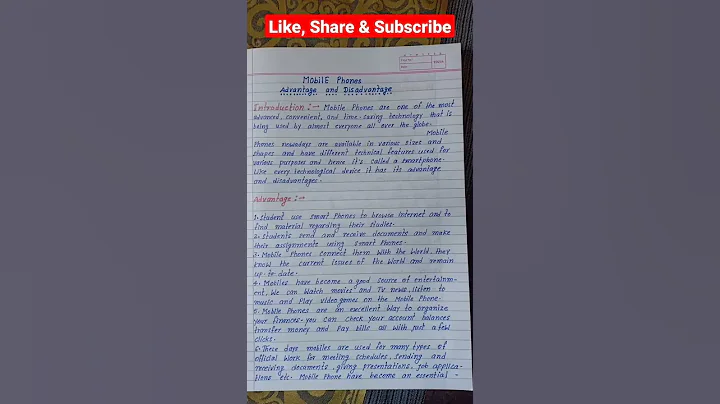 Like, Share & Subscribe
MobilE Phones
Advantage and Disadvantage
Introduction :→ Mobile Phones are one of the most
advanced, convenient, and time-saving technology that is
being used by almost everyone all over the globe.
Mobile
Phones nowadays are available in various sizes and
shapes and have different technical features used for
various purposes and hence it's called a smartphone.
Like every technological device it has its advantage
and disadvantages.
Advantage :→
1. Student use smart Phones to browse internet and to
find material regarding their studies.
2. Students send and receive documents and make
their assignments using smart Phones.
3. Mobile Phones connect them with the World. they
know the current issues of the World and remain
up-to-date.
4. Mobiles have become a good source of entertainm-
ent. We can Watch movies and TV news, listen to
music and Play video games on the Mobile Phone.
5. Mobile Phones are an excellent Way to organize
your finances. you can check your account balances
transfer money and Pay bills all with just a few
clicks.
6. These days mobiles are used for many types of
official Work for meeting schedules, sending and
receiving documents, giving presentations, job applica-
tions etc. Mobile Phone have become an essential -